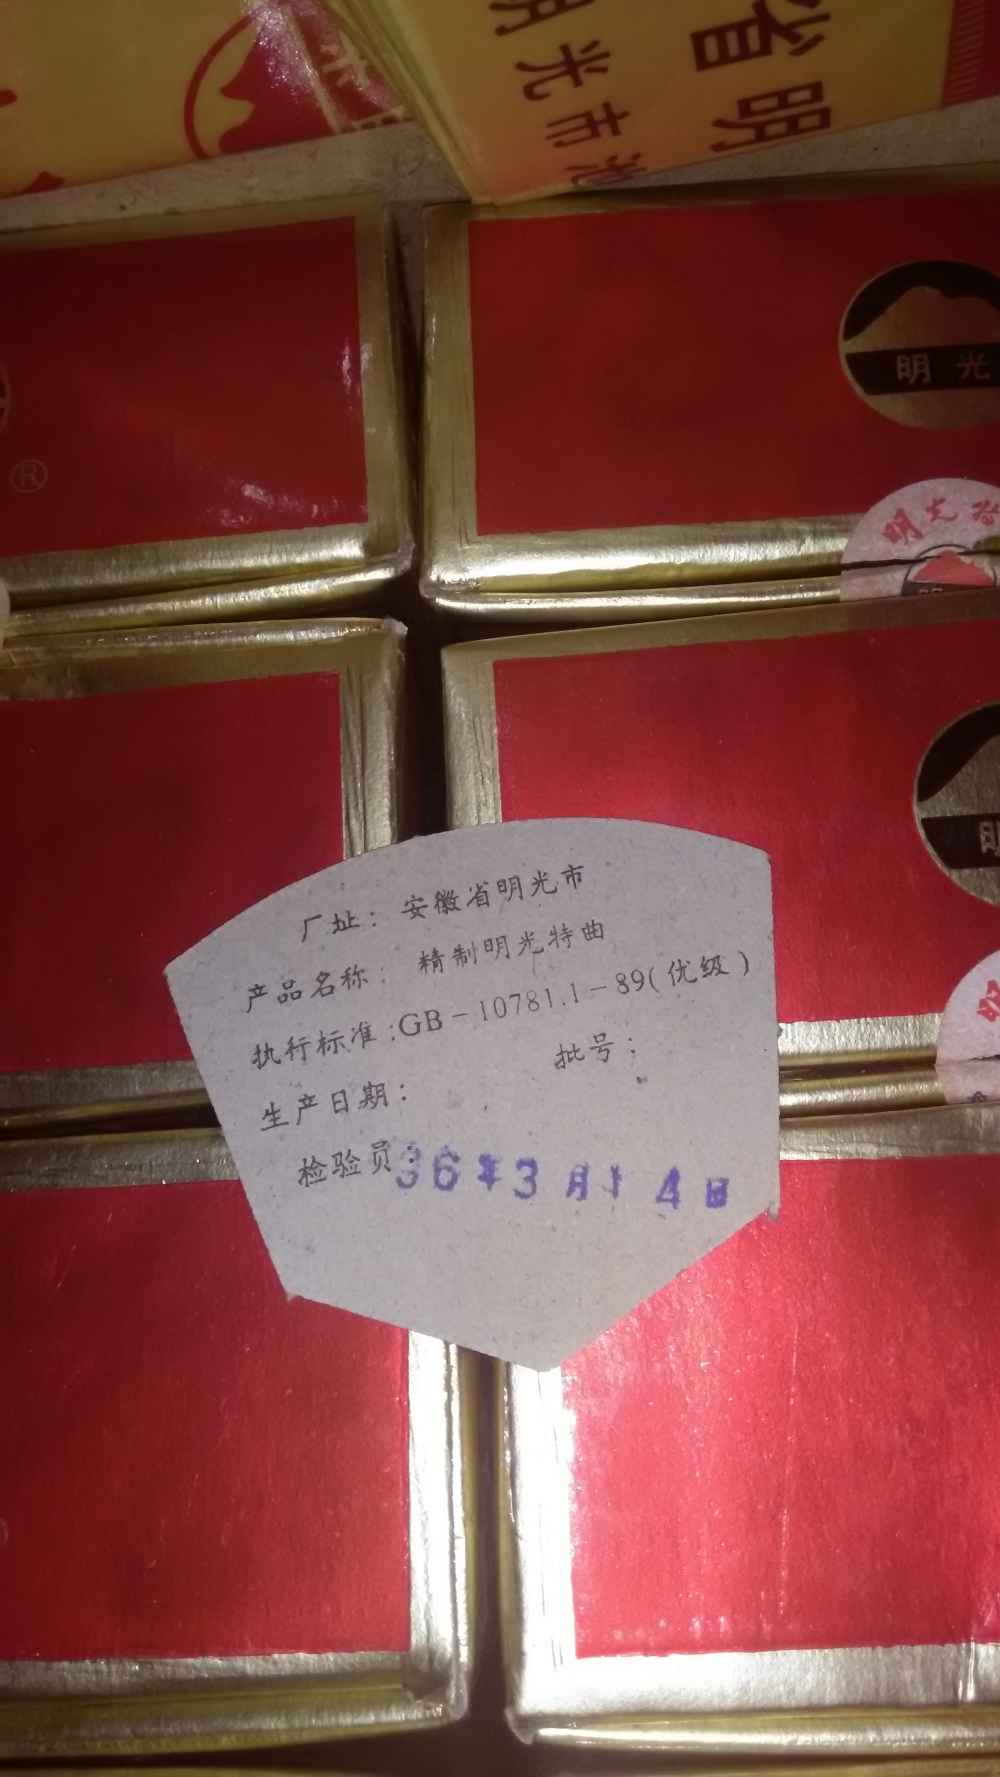 省明
明光市
®
明光
明光
厂址：安徽省明光市
产品名称：精制明光特曲
执行标准：GB-10781.1-89(优级)
生产日期：　批号：
检验员：
96年3月14日
明